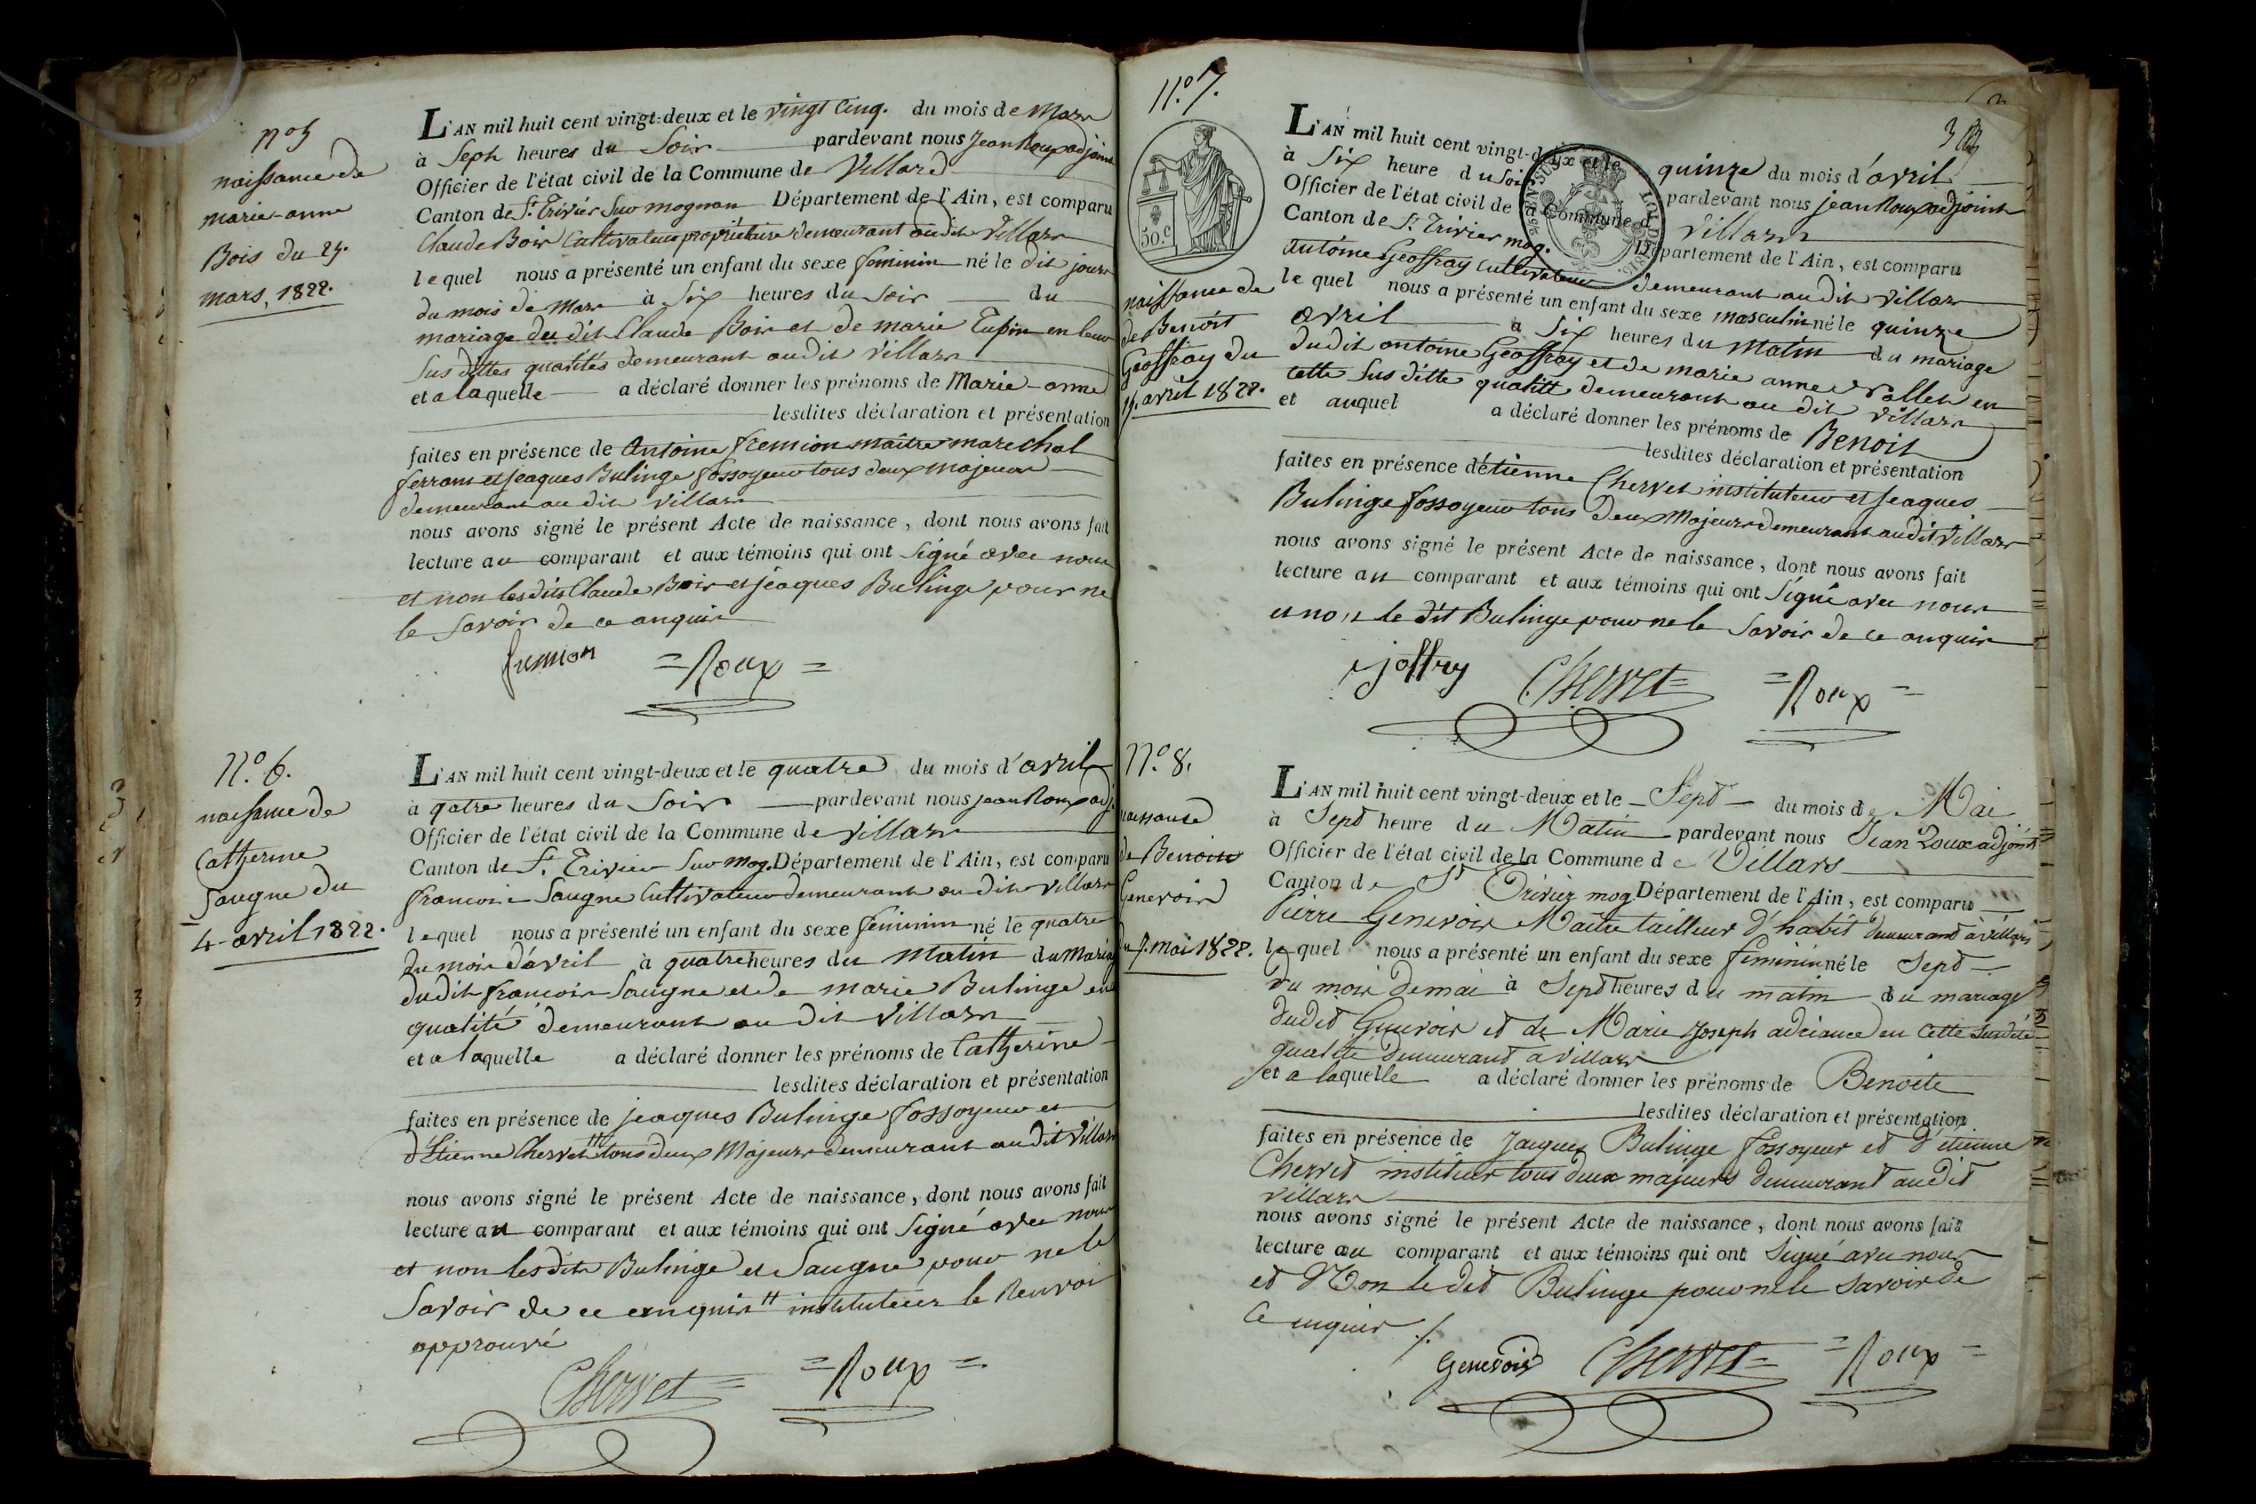 n.o 5
naissance de
marie-anne
Bois du 25.
mars, 1822.
L'AN mil huit cent vingt-deux et le vingt cinq. du mois de Mars
à Sept heures du Soir pardevant nous Jean Roux adjoint
Officier de l'état civil de la Commune de Villard
Canton de St. Trivier Sur mognan Département de l'Ain, est comparu
Claude Bois Cultivateur propriétaire demeurant audit Villars
lequel nous a présenté un enfant du sexe feminin né le dit jour
du mois de Mars à Six heures du Soir du
mariage du dit Claude Bois et de marie Tupin en leur
Sus dittes qualités demeurant audit Villars
et a laquelle a déclaré donner les prénoms de Marie-anne
lesdites déclaration et présentation
faites en présence de Antoine fremion maitre marechal
ferrant et Jeaques Bulinge fossoyeur tous deux Majeurs
demeurant au dit Villars
nous avons signé le présent Acte de naissance, dont nous avons fait
lecture au comparant et aux témoins qui ont Signé avec nous
et non lesdits Claude Bois et Jeaques Bulinge pour ne
le Savoir de ce anquis
fremion = Roux =
N.o 6.
naissance de
Catherine
Saugne du
4 avril 1822.
L'AN mil huit cent vingt-deux et le quatre du mois d'avril
à qatre heures du Soir pardevant nous jean Roux adj.
Officier de l'état civil de la Commune de Villars
Canton de St. Trivier Sur Mog. Département de l'Ain, est comparu
francois Saugne Cultivateur demeurant au dit Villars
lequel nous a présenté un enfant du sexe féminin né le quatre
du mois d'avril à quatre heures du Matin du Mariage
dudit francois Saugne et de marie Bulinge en
qualité demeurant au dit Villars
et a laquelle a déclaré donner les prénoms de Catherine
lesdites déclaration et présentation
faites en présence de jeaques Bulinge fossoyeur et
d'Etienne Chervet tous deux Majeurs demeurant audit Villars
nous avons signé le présent Acte de naissance, dont nous avons fait
lecture au comparant et aux témoins qui ont Signé avec nous
et non lesdits Bulinge et Saugne pour ne le
Savoir de ce anquis # instituteur le Renvoi
approuvé
Chervet = Roux =
N.o 7.
50.c
naissance de
de Benoit
Geoffray du
15. avril 1822.
L'AN mil huit cent vingt-deux et le quinze du mois d'avril
à Six heure du Soir pardevant nous jean Roux adjoint
Officier de l'état civil de la Commune d Villars
Canton de St. Trivier mog. Département de l'Ain, est comparu
antoine Geoffray Cultivateur demeurant au dit Villars
lequel nous a présenté un enfant du sexe masculin né le quinze
avril à Six heures du Matin du mariage
dudit antoine Geoffray et de marie anne Vollet en
cette Sus ditte qualitté demeurant au dit Villars
et auquel a déclaré donner les prénoms de Benoit
lesdites déclaration et présentation
faites en présence d'étienne Chervet instituteur et Jeaques
Bulinge fossoyeur tous deux Majeurs demeurant audit Villars
nous avons signé le présent Acte de naissance, dont nous avons fait
lecture au comparant et aux témoins qui ont Signé avec nous
et non le dit Bulinge pour ne le Savoir de ce anquis
joffry Chervet = Roux =
N.o 8.
naissance
de Benoite
Genevois
du 7. mai 1822.
L'AN mil huit cent vingt-deux et le Sept du mois de Mai
à Sept heure du Matin pardevant nous Jean Roux adjoint
Officier de l'état civil de la Commune de Villars
Canton de St Trivier mog. Département de l'Ain, est comparu
Pierre Genevois Maitre tailleur d'habit demeurant à villars
lequel nous a présenté un enfant du sexe féminin né le Sept
du mois de mai à Sept heures du matin du mariage
dudit Genevois et de Marie Joseph adriance en Cette Susdite
qualité demeurant à Villars
et a laquelle a déclaré donner les prénoms de Benoite
lesdites déclaration et présentation
faites en présence de Jaques Bulinge fossoyeur et d'étienne
Chervet institieur tous deux majeurs demeurant audit
Villars
nous avons signé le présent Acte de naissance, dont nous avons fait
lecture au comparant et aux témoins qui ont Signé avec nous
et Non le dit Bulinge pour ne le savoir de
Ce enquis ./.
Genevois Chervet = Roux =